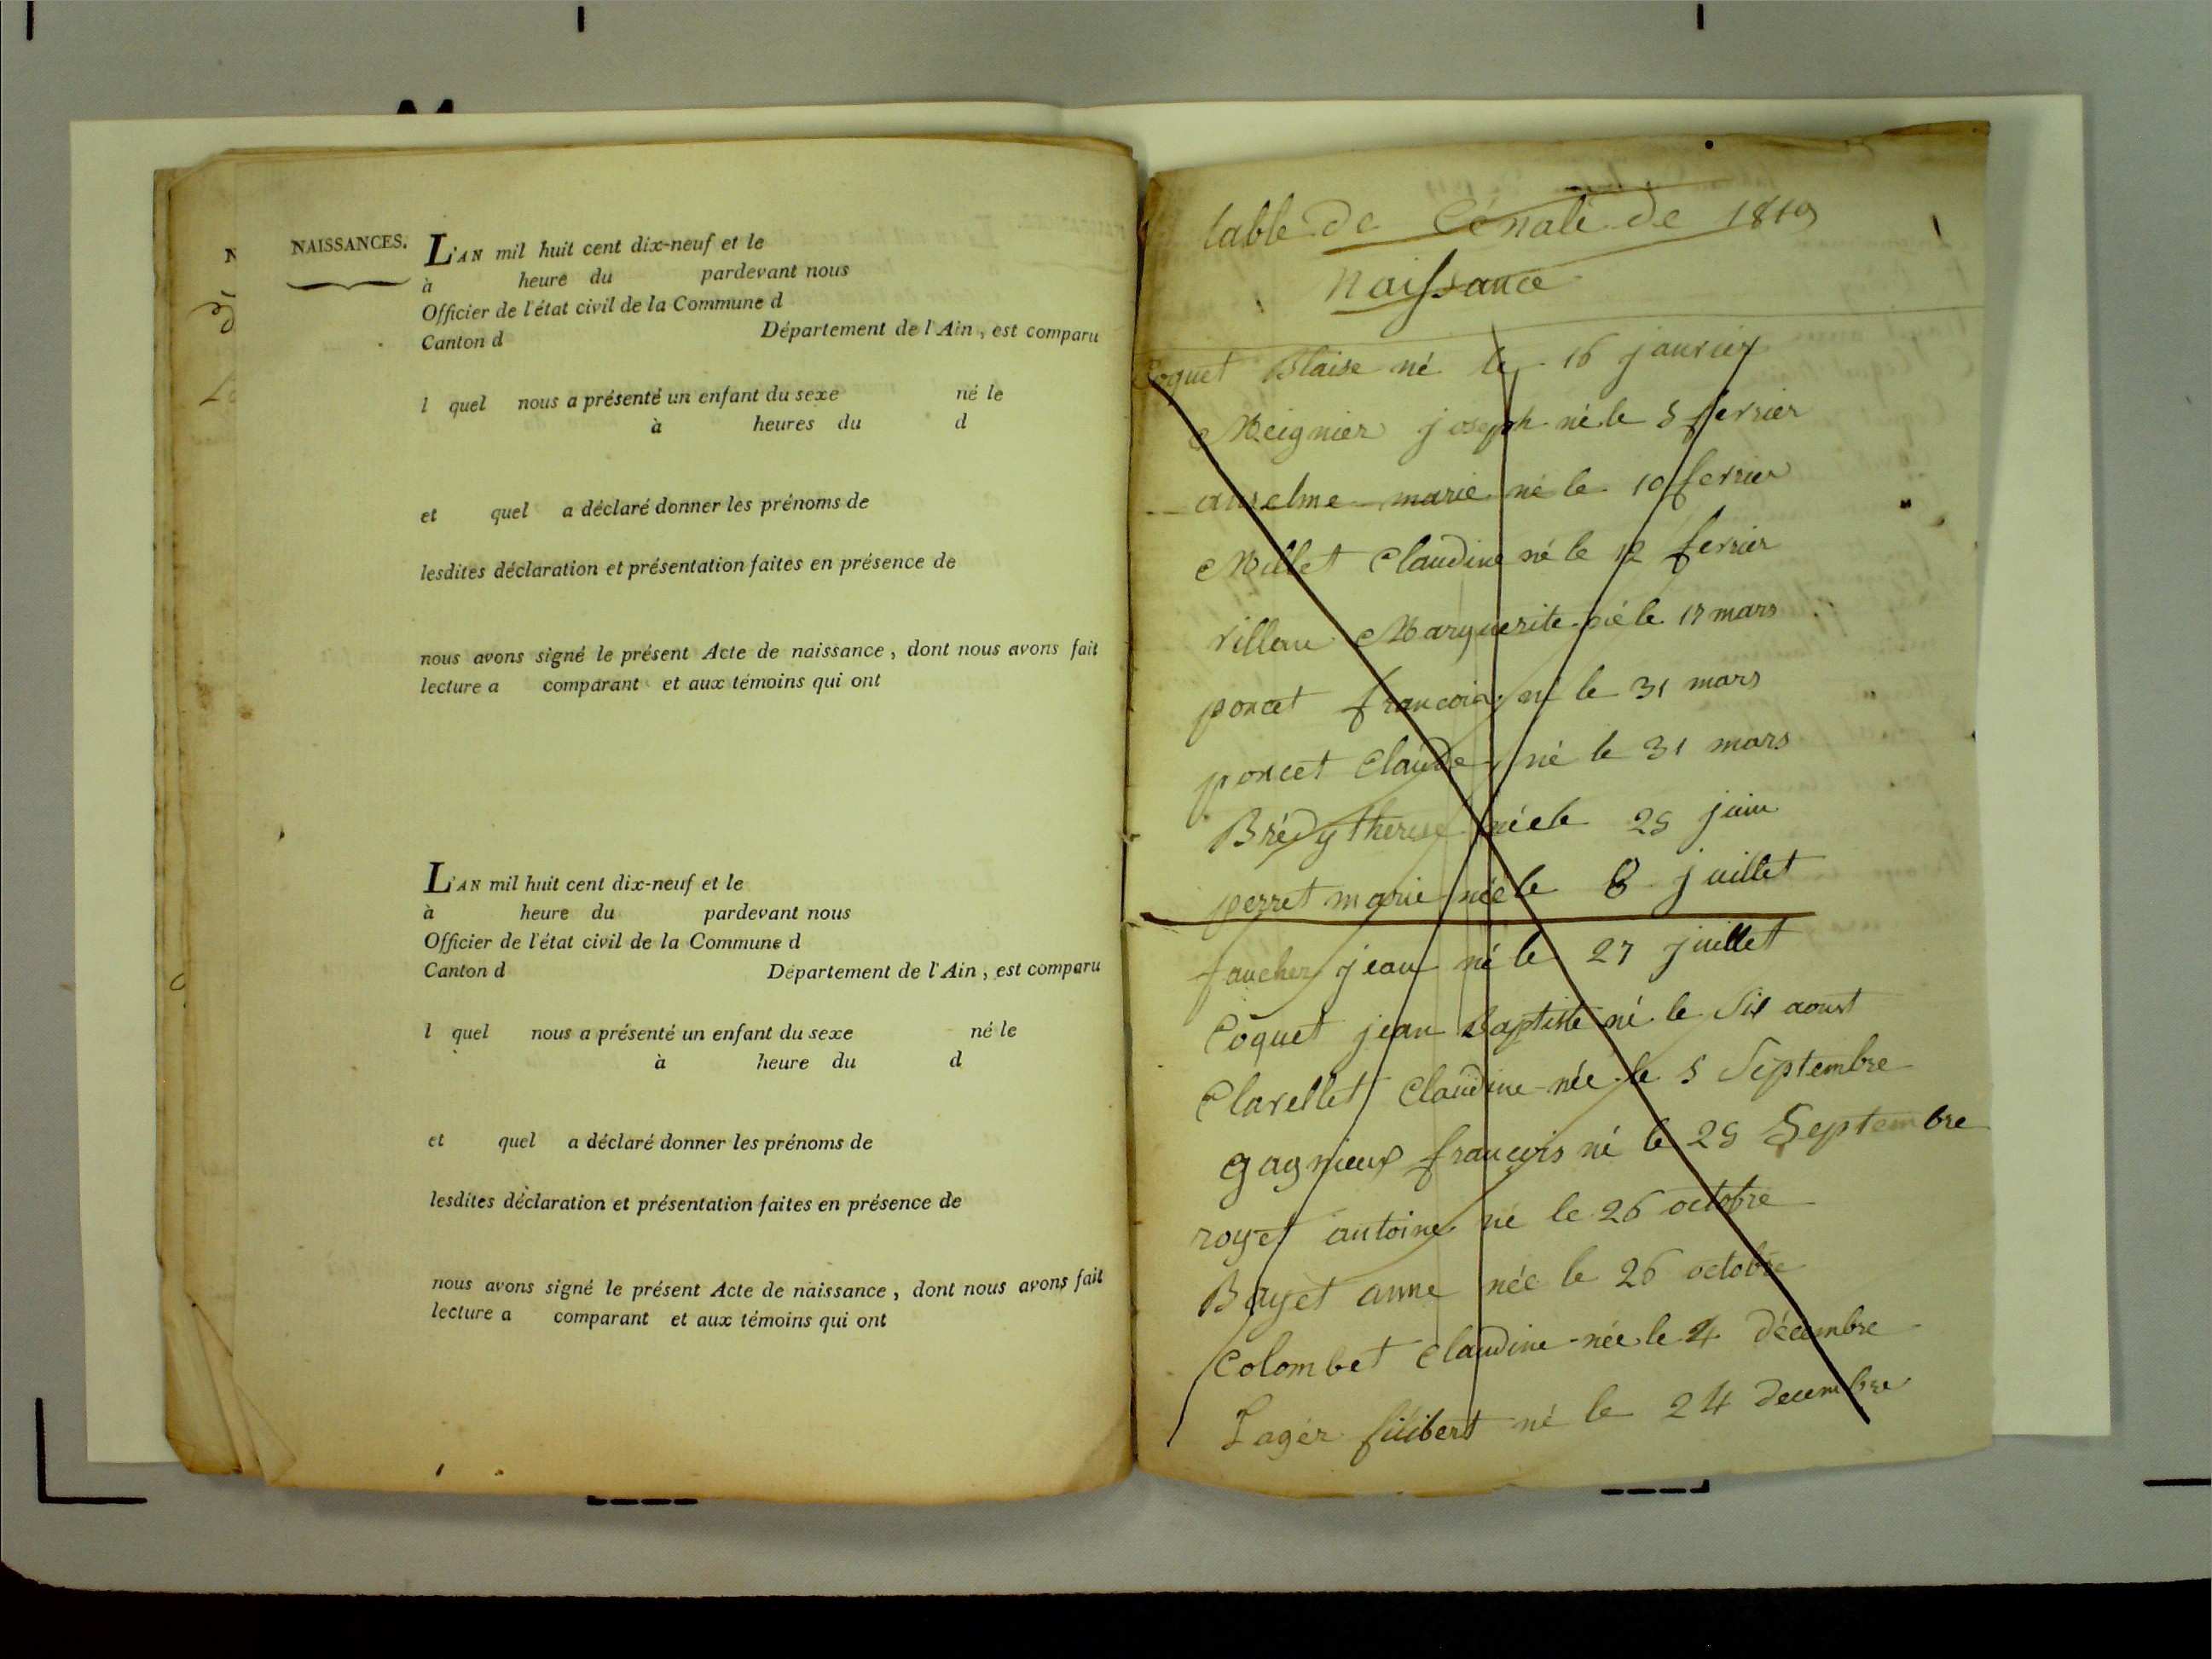 NAISSANCES.
L'AN mil huit cent dix-neuf et le
à heure du pardevant nous
Officier de l'état civil de la Commune d
Canton d Département de l'Ain, est comparu
l quel nous a présenté un enfant du sexe né le
à heures du d
et quel a déclaré donner les prénoms de
lesdites déclaration et présentation faites en présence de
nous avons signé le présent Acte de naissance, dont nous avons fait
lecture a comparant et aux témoins qui ont
L'AN mil huit cent dix-neuf et le
à heure du pardevant nous
Officier de l'état civil de la Commune d
Canton d Département de l'Ain, est comparu
l quel nous a présenté un enfant du sexe né le
à heure du d
et quel a déclaré donner les prénoms de
lesdites déclaration et présentation faites en présence de
nous avons signé le présent Acte de naissance, dont nous avons fait
lecture a comparant et aux témoins qui ont
table de de 1819
Naissance
Coquet Blaise né le 16 janvier
Meignier joseph né le 5 fevrier
anselme marie né le 10 fevrier
Millet Claudine né le 12 fevrier
Marguerite né le 17 mars
poncet francois né le 31 mars
poncet Claude né le 31 mars
Brédy therese née le 25 juin
perret marie née le 8 juillet
faucher jean né le 27 juillet
Coquet jean Baptiste né le Six aoust
Clavellet Claudine née le 5 Septembre
gagnieux francois né le 25 Septembre
royet antoine né le 26 octobre
Bayet anne née le 26 octobre
Colombet Claudine née le 4 décembre
Lager filibert né le 24 decembre